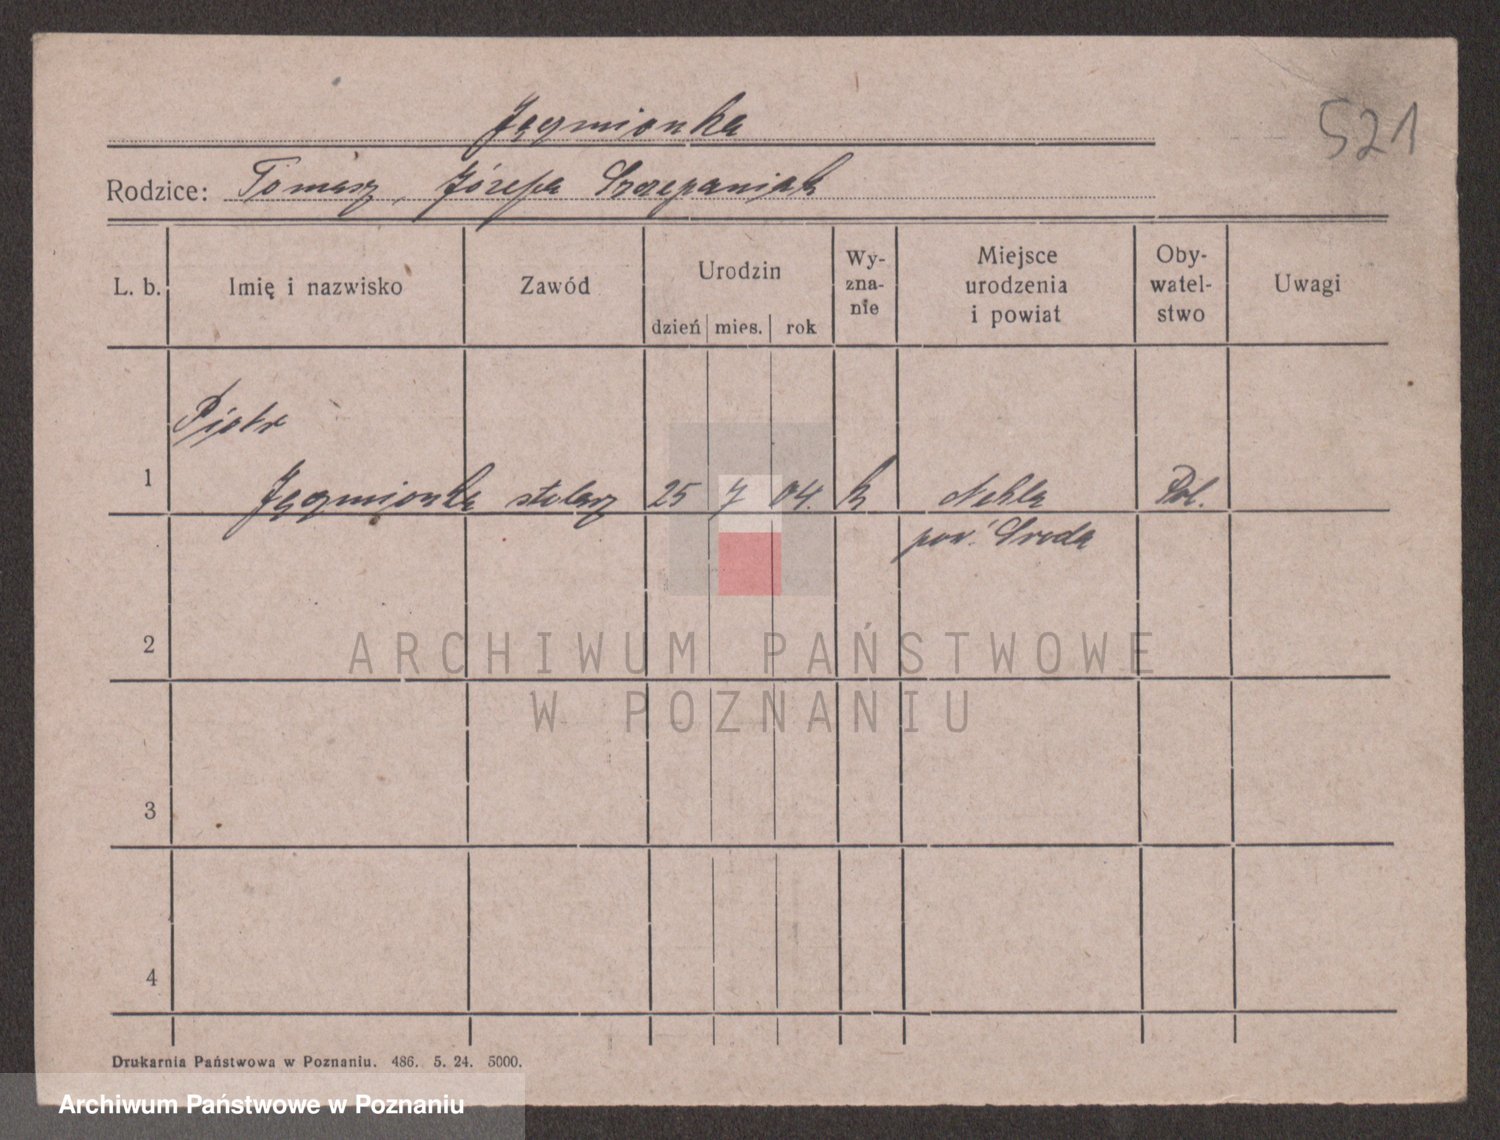 Jęgmionka
521
Rodzice: Tomasz, Józefa Szczepaniak
L. b. Imię i nazwisko Zawód Urodzin Wy-zna-nie Miejsce urodzenia i powiat Oby-watel-stwo Uwagi
dzień mies. rok
Piotr
1 Jęgmionka stolarz 25 7 04. k Nekla Pol.
pow. Środa
2
ARCHIWUM PAŃSTWOWE
W POZNANIU
3
4
Drukarnia Państwowa w Poznaniu. 486. 5. 24. 5000.
Archiwum Państwowe w Poznaniu